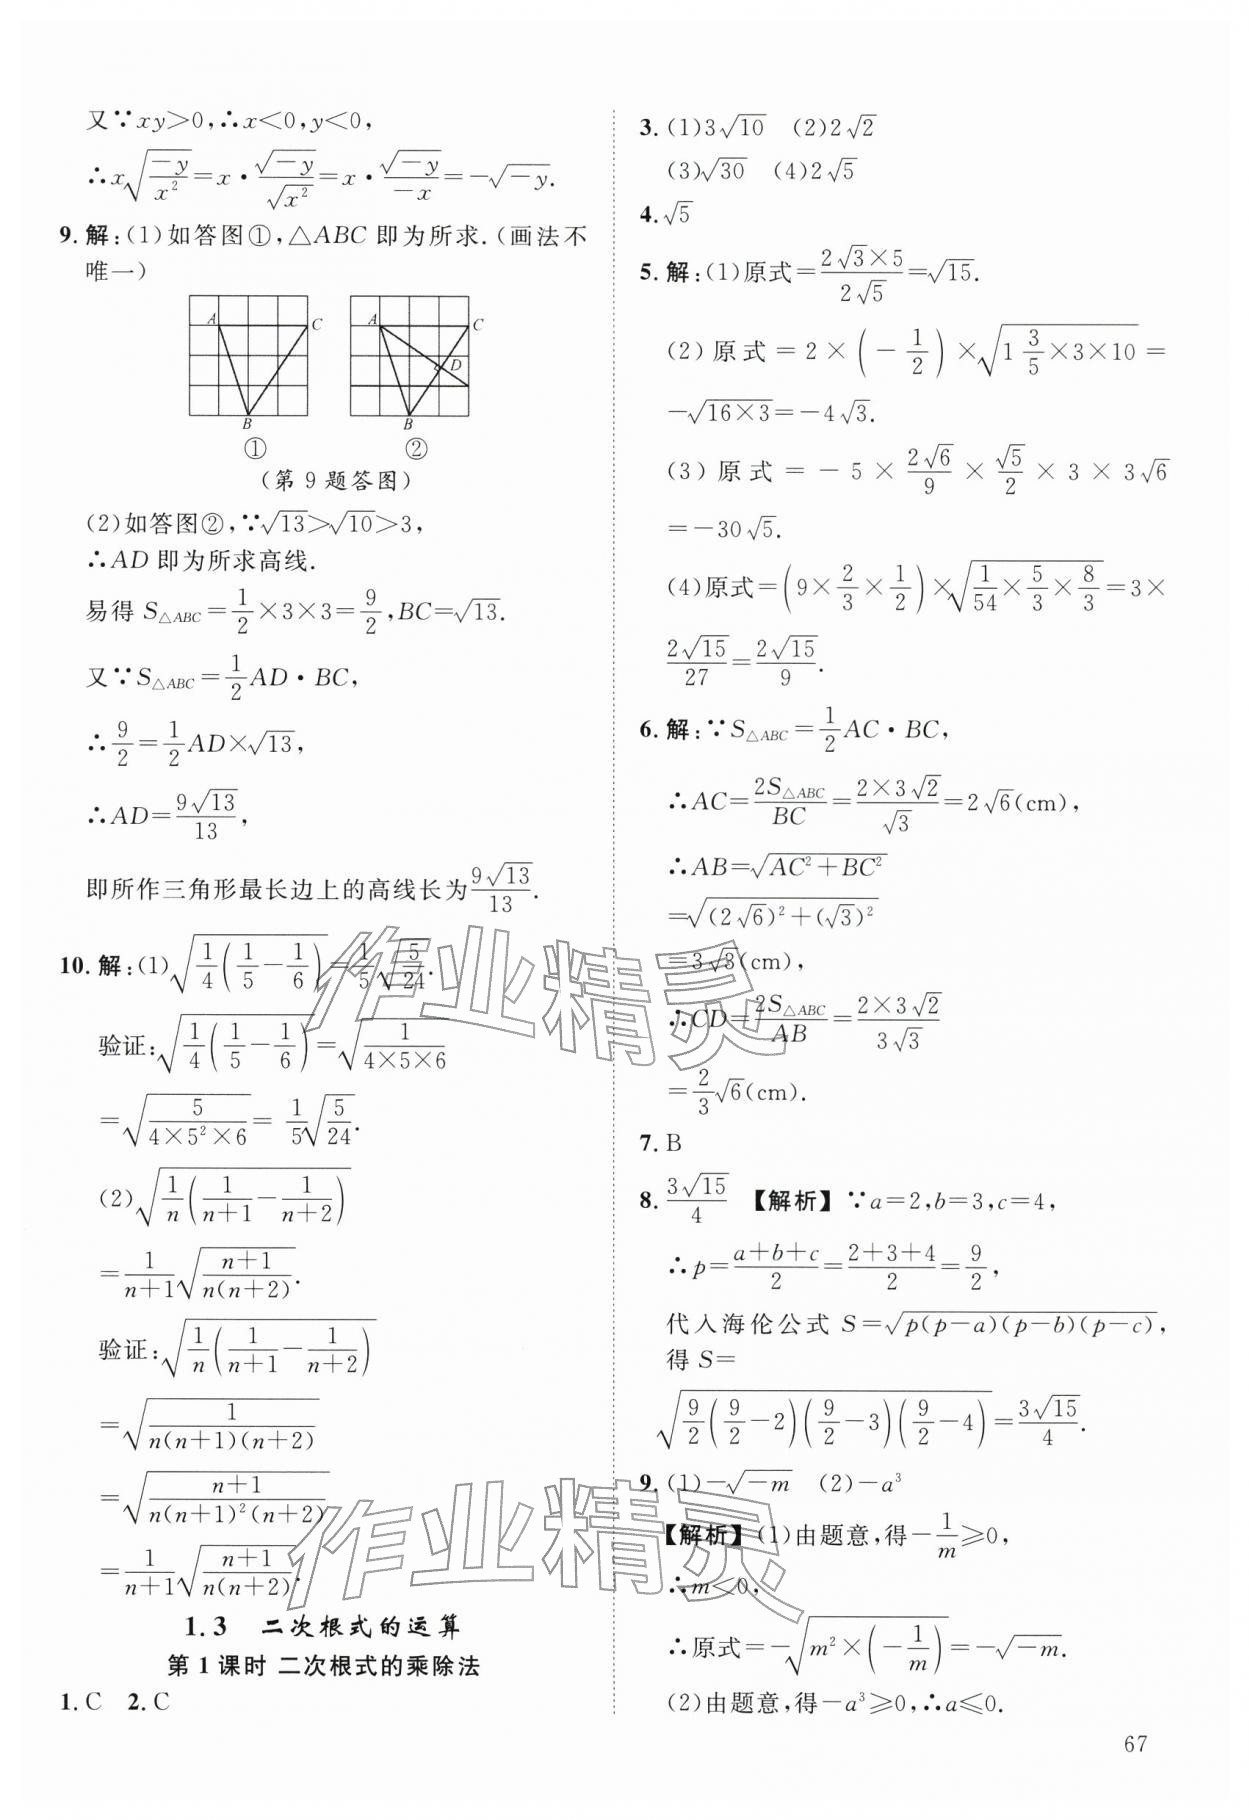 又∵xy>0,∴x<0,y<0,
∴x√(-y/x²)=x·√(-y)/√(x²)=x·√(-y)/(-x)=-√(-y).
9.解:(1)如答图①,△ABC 即为所求.(画法不
唯一)
A C B ① A C D B ②
(第 9 题答图)
(2)如答图②,∵√13>√10>3,
∴AD 即为所求高线.
易得 S△ABC=1/2×3×3=9/2,BC=√13.
又∵S△ABC=1/2AD·BC,
∴9/2=1/2AD×√13,
∴AD=9√13/13,
即所作三角形最长边上的高线长为9√13/13.
10.解:(1)√(1/4(1/5-1/6))=1/5√(5/24).
验证:√(1/4(1/5-1/6))=√(1/(4×5×6))
=√(5/(4×5²×6))=1/5√(5/24).
(2)√(1/n(1/(n+1)-1/(n+2)))
=1/(n+1)√((n+1)/(n(n+2))).
验证:√(1/n(1/(n+1)-1/(n+2)))
=√(1/(n(n+1)(n+2)))
=√((n+1)/(n(n+1)²(n+2)))
=1/(n+1)√((n+1)/(n(n+2))).
1.3 二次根式的运算
第 1 课时 二次根式的乘除法
1.C 2.C
3.(1)3√10 (2)2√2
(3)√30 (4)2√5
4.√5
5.解:(1)原式=(2√3×5)/(2√5)=√15.
(2)原式=2×(-1/2)×√(1 3/5×3×10)=
-√(16×3)=-4√3.
(3)原式=-5×2√6/9×√5/2×3×3√6
=-30√5.
(4)原式=(9×2/3×1/2)×√(1/54×5/3×8/3)=3×
2√15/27=2√15/9.
6.解:∵S△ABC=1/2AC·BC,
∴AC=2S△ABC/BC=(2×3√2)/√3=2√6(cm),
∴AB=√(AC²+BC²)
=√((2√6)²+(√3)²)
=3√3(cm),
∴CD=2S△ABC/AB=(2×3√2)/(3√3)
=2/3√6(cm).
7.B
8.3√15/4 【解析】∵a=2,b=3,c=4,
∴p=(a+b+c)/2=(2+3+4)/2=9/2,
代入海伦公式 S=√(p(p-a)(p-b)(p-c)),
得 S=
√(9/2(9/2-2)(9/2-3)(9/2-4))=3√15/4.
9.(1)-√(-m) (2)-a³
【解析】(1)由题意,得-1/m≥0,
∴m<0,
∴原式=-√(m²×(-1/m))=-√(-m).
(2)由题意,得-a³≥0,∴a≤0.
67
作业精灵
作业精灵